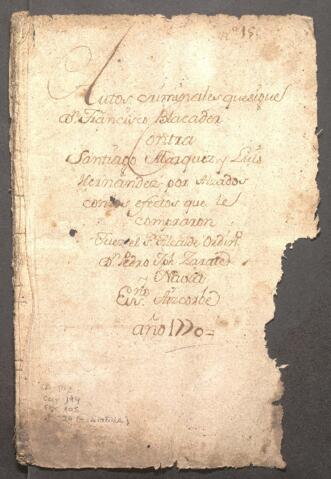 Nº 15.
Autos criminales que sigue
Dn. Francisco Blacader
Contra
Santiago Marquez y Luis
Hernandez, por Alzados
con los efectos que le
compraron
Juez el Sr. Alcalde Ordinº
Dn. Pedro Jph. Zarate
y Navia
Esnº Aizcorbe
año 1770=
Leg 194
105